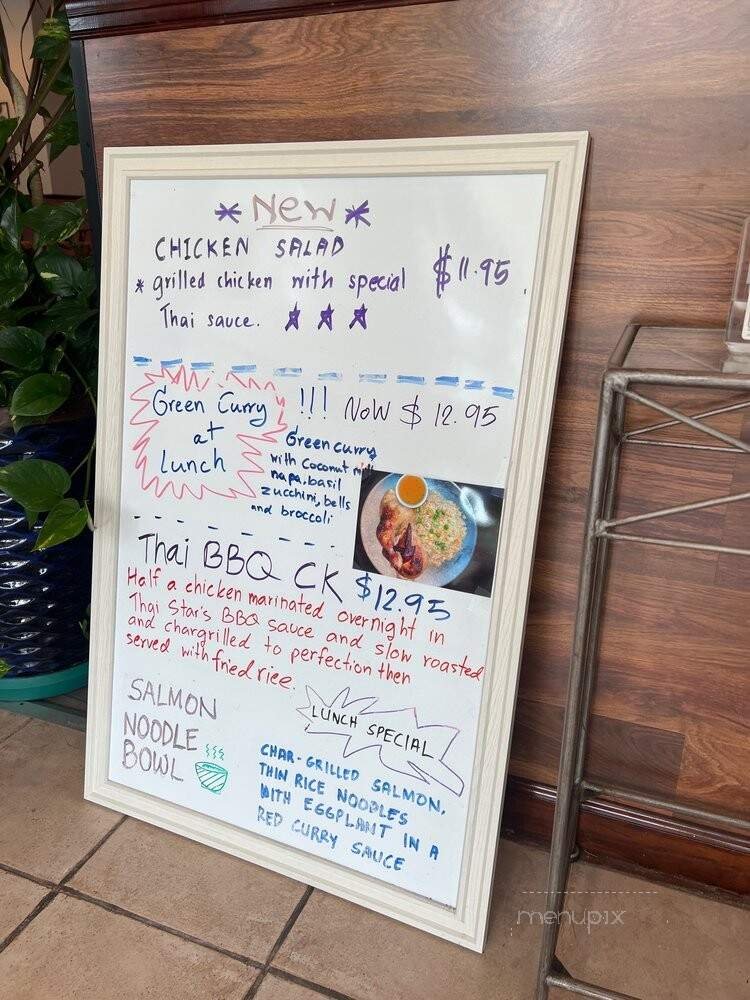 * New *
CHICKEN SALAD
* grilled chicken with special $11.95
Thai sauce.
Green Curry !!! NOW $12.95
at
Lunch
Green curry
with Coconut milk
napa, basil
zucchini, bells
and broccoli
Thai BBQ CK $12.95
Half a chicken marinated overnight in
Thai Star's BBQ sauce and slow roasted
and chargrilled to perfection then
served with fried rice.
SALMON
NOODLE
BOWL
LUNCH SPECIAL
CHAR-GRILLED SALMON,
THIN RICE NOODLES
WITH EGGPLANT IN A
RED CURRY SAUCE
menupix